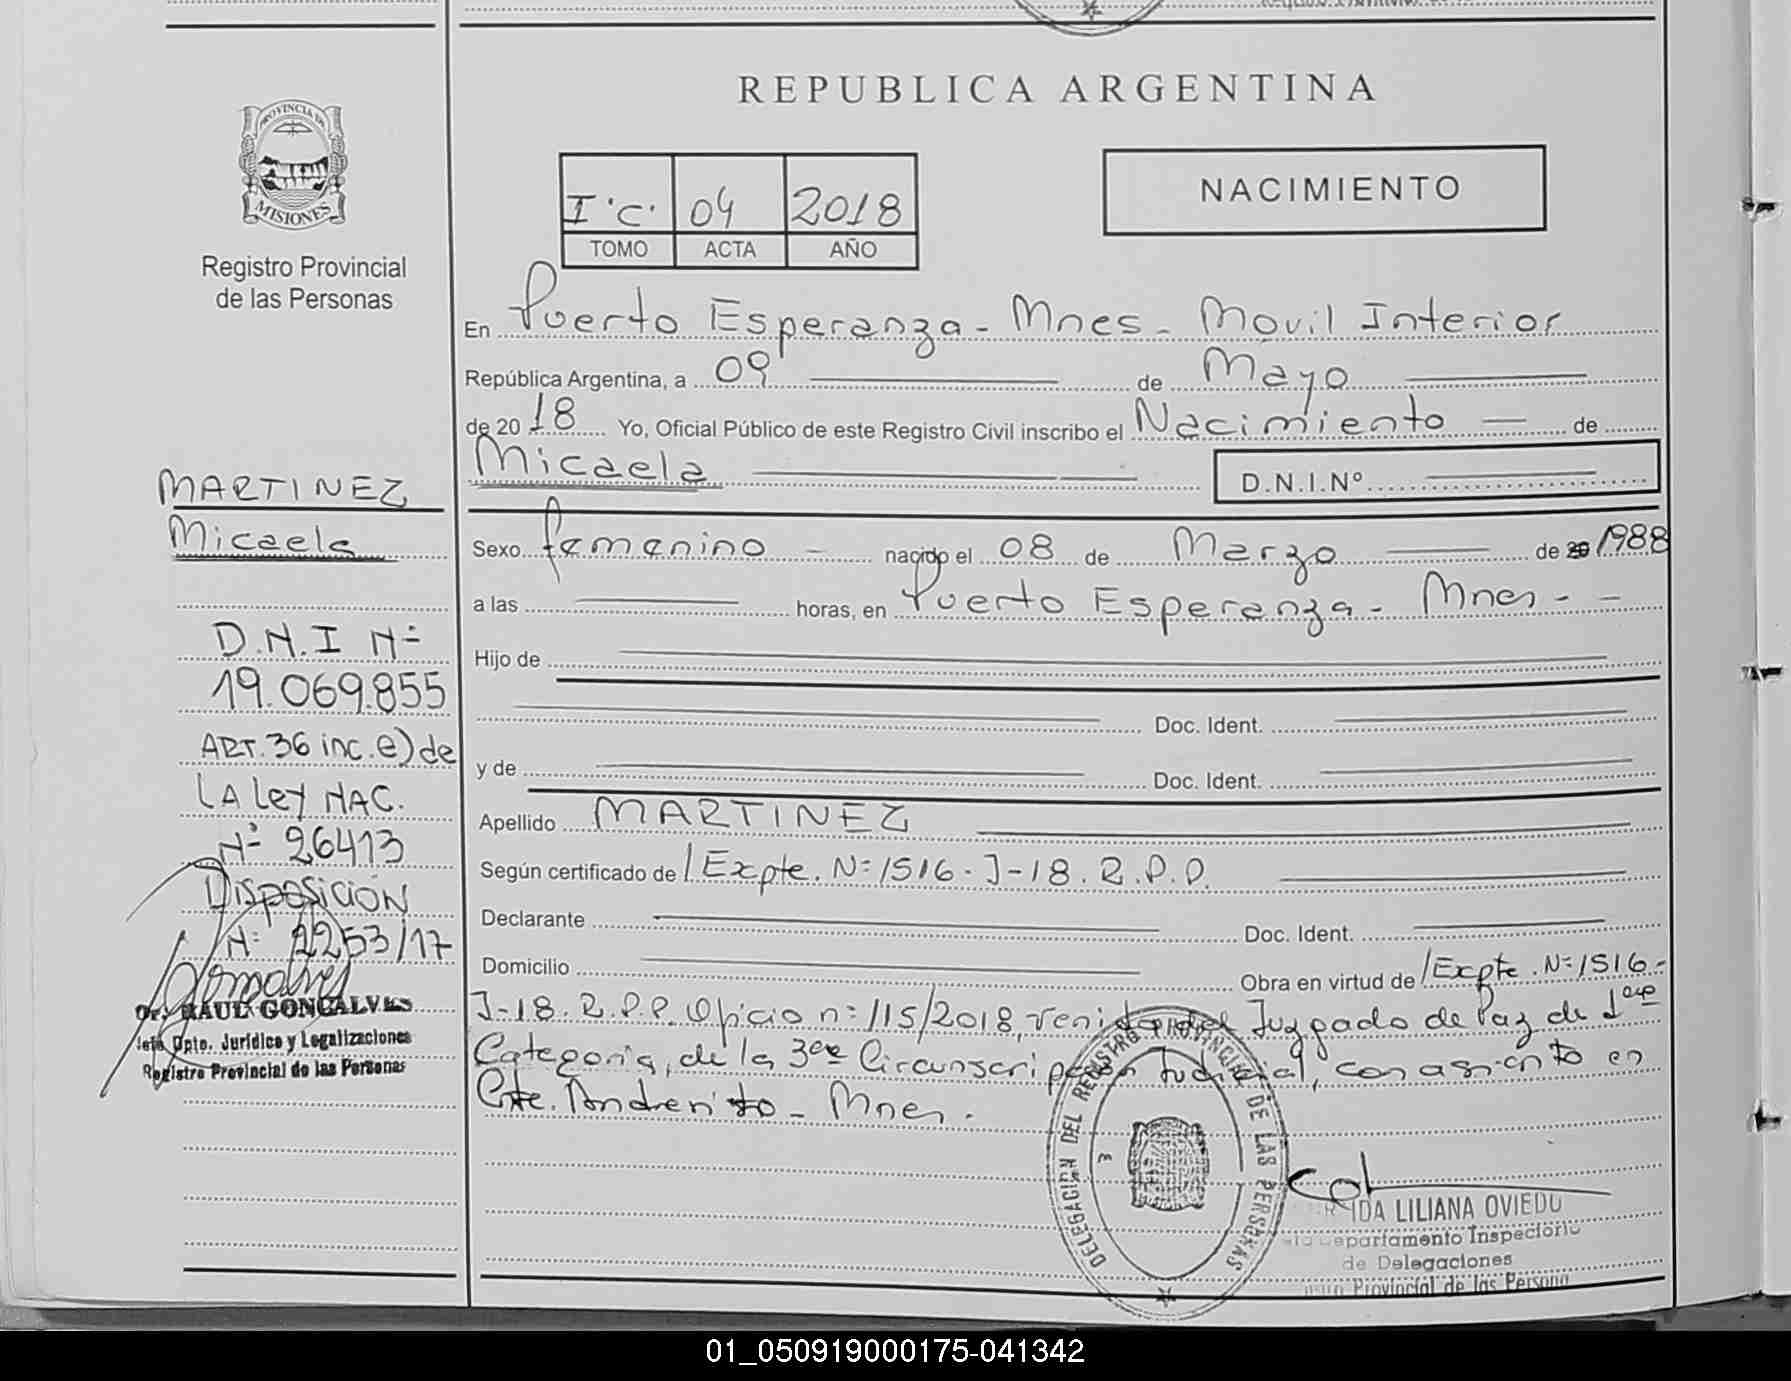 REPUBLICA ARGENTINA
PROVINCIA DE
MISIONES
Registro Provincial
de las Personas
I.C. 04 2018
TOMO ACTA AÑO
NACIMIENTO
En Puerto Esperanza - Mnes - Movil Interior
República Argentina, a 09 de Mayo
de 2018 Yo, Oficial Público de este Registro Civil inscribo el Nacimiento — de
Micaela D.N.I.Nº
Sexo femenino - nacido el 08 de Marzo de 20 1988
a las horas, en Puerto Esperanza - Mnes - -
Hijo de
Doc. Ident.
y de Doc. Ident.
Apellido MARTINEZ
Según certificado de /Expte. Nº 1516 - J-18. R.P.P.
Declarante Doc. Ident.
Domicilio Obra en virtud de /Expte. Nº 1516 -
J-18. R.P.P. Oficio nº 115/2018, venido del Juzgado de Paz de 1era
Categoria, de la 3era Circunscripcion Judicial, con asiento en
Cte. Andresito - Mnes.
MARTINEZ
Micaela
D.N.I Nº
19.069.855
ART. 36 inc. e) de
LA LeY NAC.
Nº 26413
DISPOSICIÓN
Nº 2253/17
Dr. RAUL GONCALVES
Jefe Dpto. Jurídico y Legalizaciones
Registro Provincial de las Personas
DELEGACION DEL REGISTRO PROVINCIAL DE LAS PERSONAS
3
IDA LILIANA OVIEDO
Departamento Inspectorio
de Delegaciones
Provincial de las Person
01_050919000175-041342